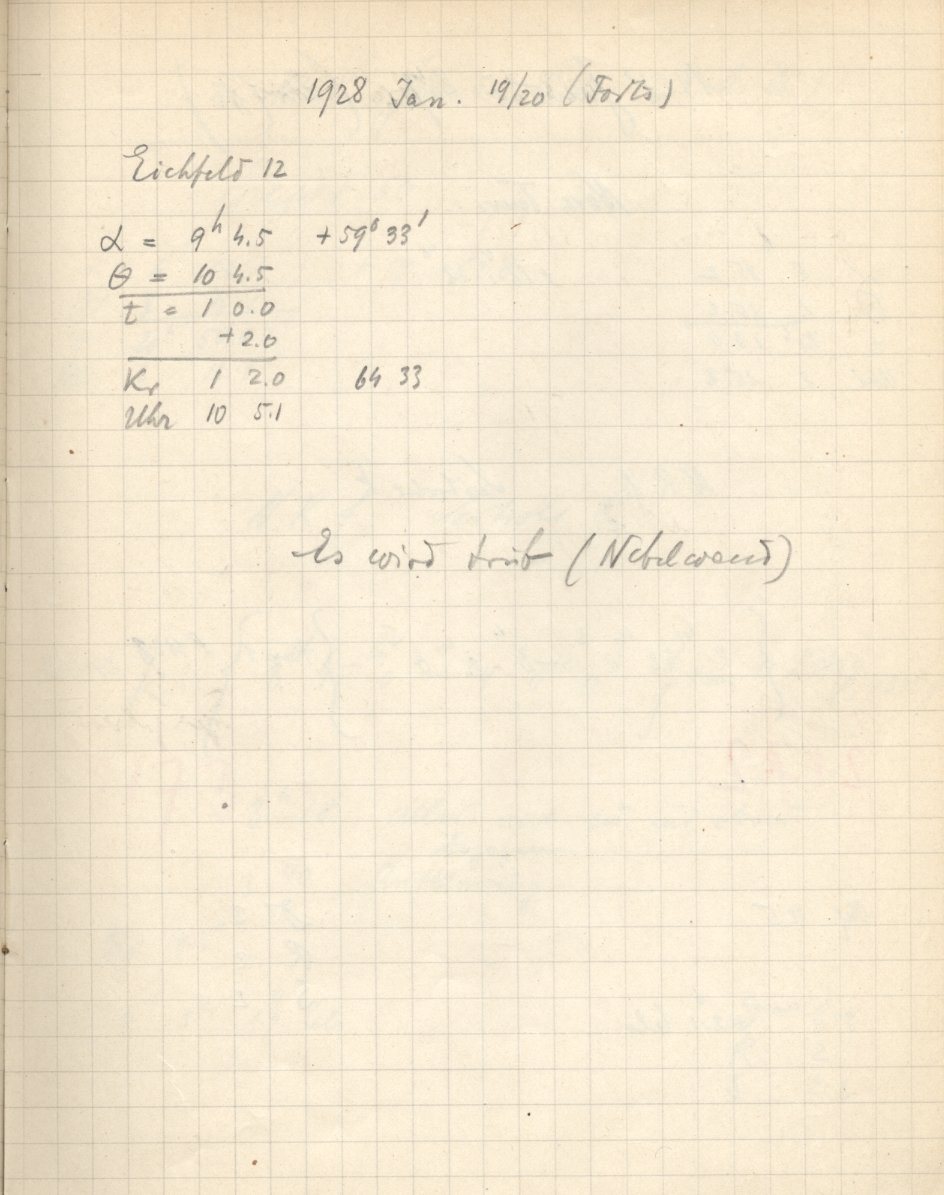 1928 Jan. 19/20 (Forts)
Eichfeld 12
α = 9h 4.5 +59° 33'
θ = 10 4.5
t = 1 0.0
+2.0
Kr 1 2.0 64 33
Uhr 10 5.1
Es wird trüb (Nebelwand)